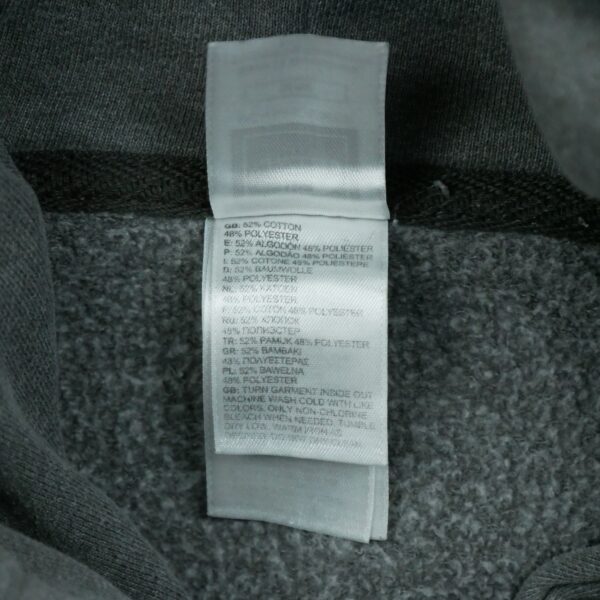 GB: 52% COTTON
48% POLYESTER
E: 52% ALGODÓN 48% POLIÉSTER
P: 52% ALGODÃO 48% POLIÉSTER
I: 52% COTONE 48% POLIESTERE
D: 52% BAUMWOLLE
48% POLYESTER
NL: 52% KATOEN
48% POLYESTER
F: 52% COTON 48% POLYESTER
RU: 52% ХЛОПОК
48% ПОЛИЭСТЕР
TR: 52% PAMUK 48% POLYESTER
GR: 52% ΒΑΜΒΑΚΙ
48% ΠΟΛΥΕΣΤΕΡΑΣ
PL: 52% BAWEŁNA
48% POLYESTER
GB: TURN GARMENT INSIDE OUT
MACHINE WASH COLD WITH LIKE
COLORS, ONLY NON-CHLORINE
BLEACH WHEN NEEDED, TUMBLE
DRY LOW, WARM IRON AS